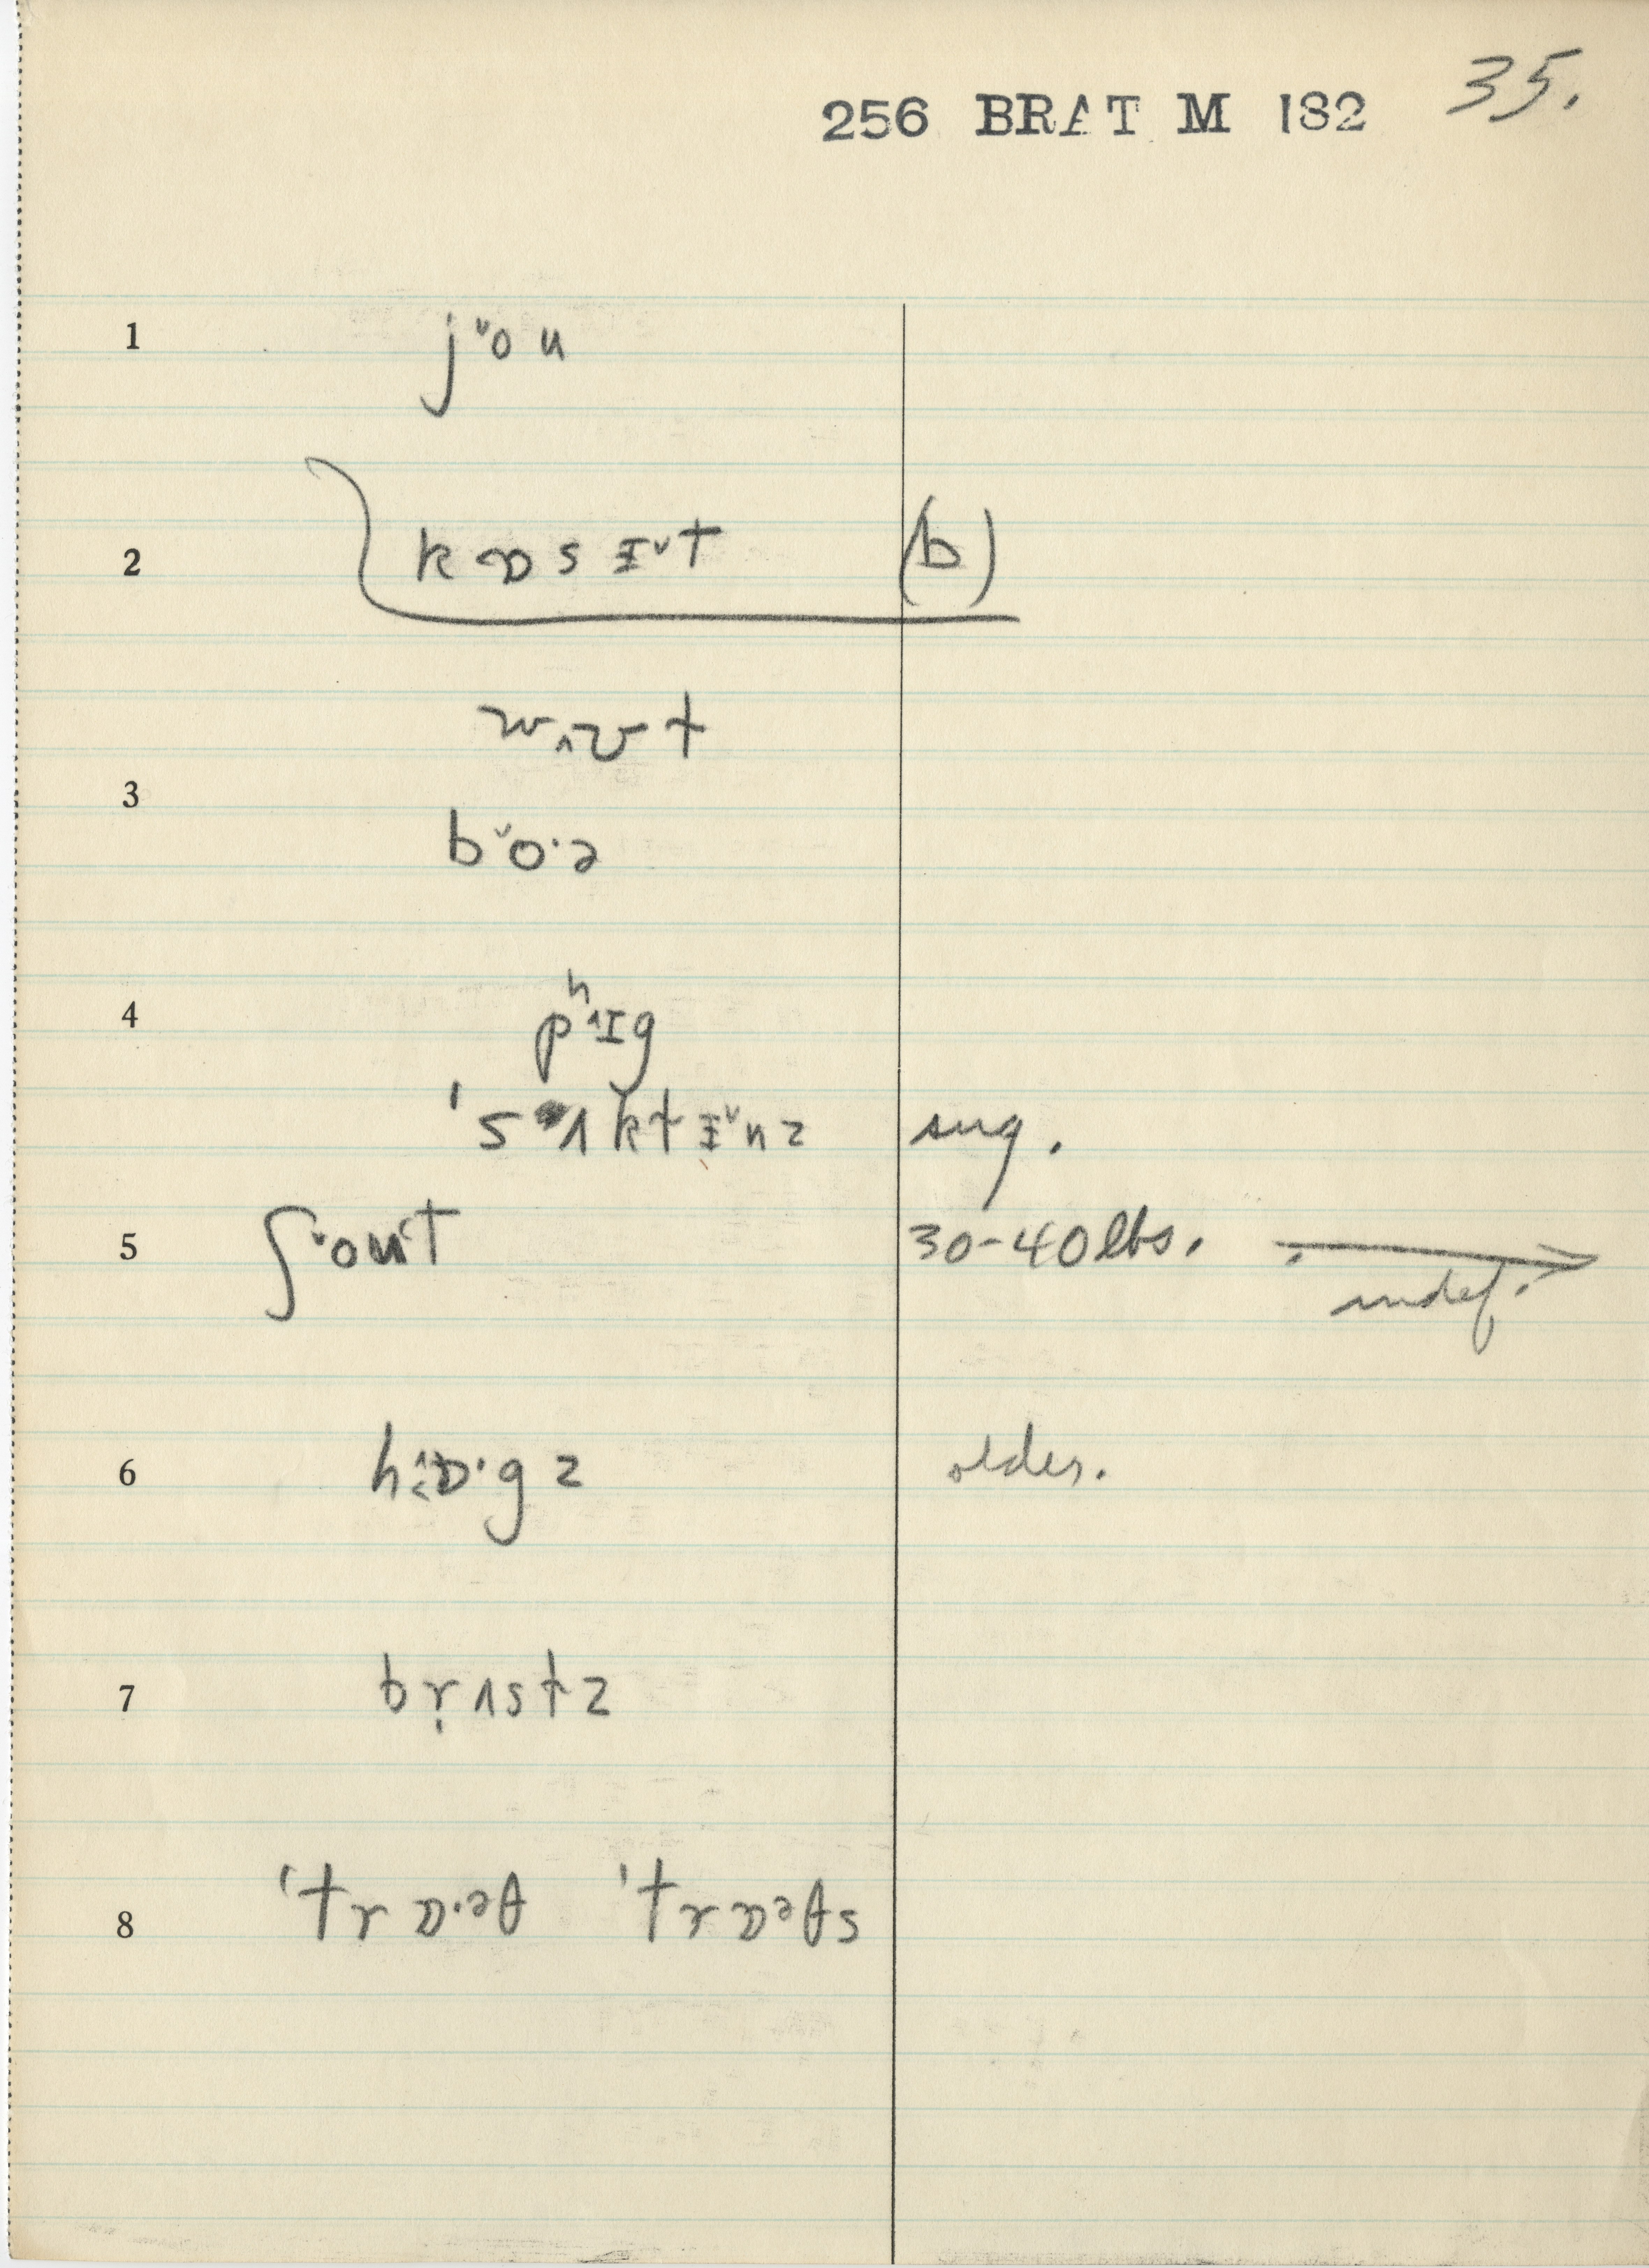 256 BRAT M 182 35.
1 j˅oʊ
2 kɒsɨ˅t (b)
wʌʊt
3 b˅o·ə
4 pʰ˄ɪg
ˈsʌktɨ˅nz sug.
5 ʃ˅oʊt 30-40 lbs. → indef.
6 hɒ·gz older.
7 br̩ʌstz
8 ˈtrɒ·əθ ˈtrɒəθs